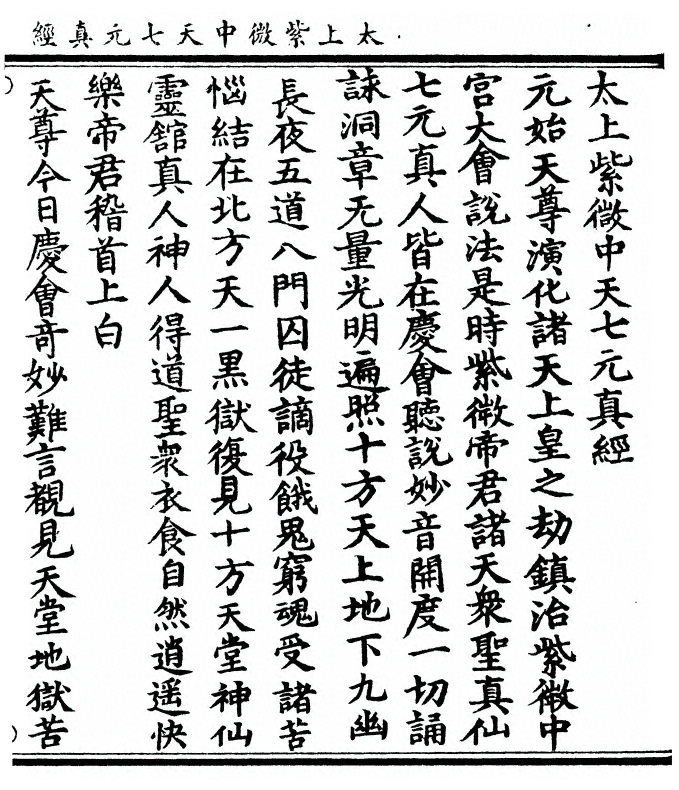 太上紫微中天七元真經
太上紫微中天七元真經
元始天尊演化諸天上皇之劫鎮治紫微中
宮大會說法是時紫微帝君諸天衆聖真仙
七元真人皆在慶會聽說妙音開度一切誦
詠洞章无量光明遍照十方天上地下九幽
長夜五道八門囚徒謫役餓鬼窮魂受諸苦
惱結在北方天一黑獄復見十方天堂神仙
靈舘真人神人得道聖衆衣食自然逍遥快
樂帝君稽首上白
天尊今日慶會竒妙難言覩見天堂地獄苦